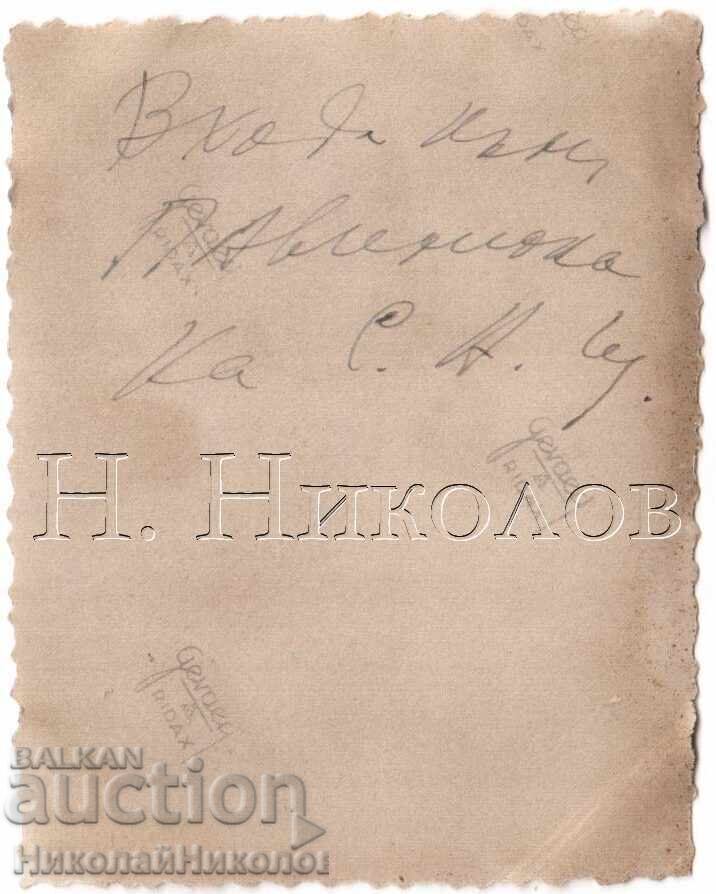 Входа към
Павилиона
на С. Н. Щ.
Gevaert
RIDAX
Gevaert
RIDAX
Н. Николов
Gevaert
RIDAX
BALKAN
auction
НиколайНиколов